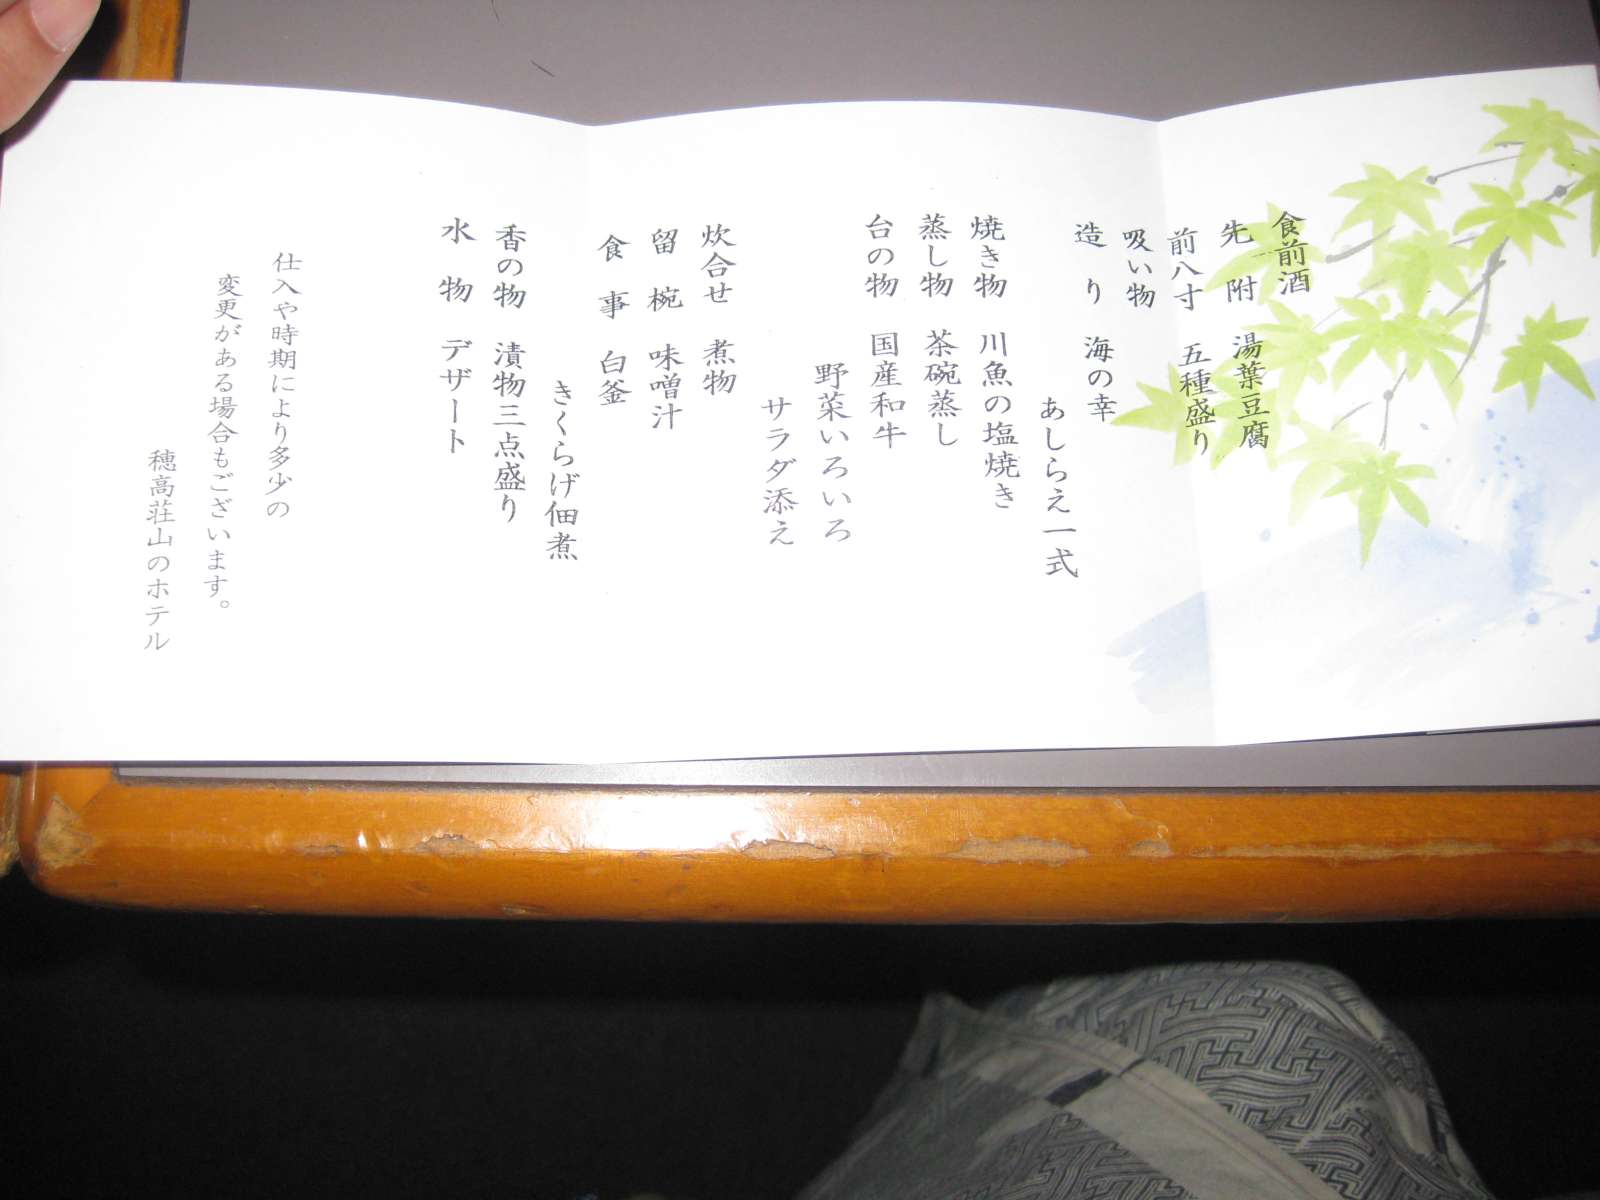 食前酒
先附 湯葉豆腐
前八寸 五種盛り
吸い物
造り 海の幸
あしらえ一式
焼き物 川魚の塩焼き
蒸し物 茶碗蒸し
台の物 国産和牛
野菜いろいろ
サラダ添え
炊合せ 煮物
留椀 味噌汁
食事 白釜
きくらげ佃煮
香の物 漬物三点盛り
水物 デザート
仕入や時期により多少の
変更がある場合もございます。
穂高荘山のホテル